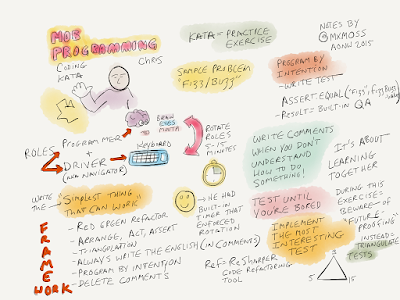 MOB
PROGRAMMING
CODING
KATA
CHRIS
KATA = PRACTICE
EXERCISE
NOTES BY
@MXMOSS
AONW 2015
SAMPLE PROBLEM
"FIZZ/BUZZ"
PROGRAM BY
INTENTION
- WRITE TEST
ASSERT EQUAL ("FIZZ", FIZZBUZZ
- RESULT = BUILT-IN QA
BRAIN
EYES
MOUTH
ROLES
PROGRAMMER
+
DRIVER
(AKA NAVIGATOR)
KEYBOARD
ROTATE
ROLES
5-15
MINUTES
WRITE COMMENTS
WHEN YOU DON'T
UNDERSTAND
HOW TO DO
SOMETHING!
IT'S ABOUT
LEARNING
TOGETHER
WRITE
THE
"SIMPLEST THING
THAT CAN WORK"
HE HAD
BUILT-IN
TIMER THAT
ENFORCED
ROTATION
TEST UNTIL
YOU'RE BORED
DURING THIS
EXERCISES
BEWARE OF
"FUTURE
PROOFING"
INSTEAD =
TRIANGULATE
TESTS
FRAMEWORK
- RED GREEN REFACTOR
- ARRANGE, ACT, ASSERT
- TRIANGULATION
- ALWAYS WRITE THE ENGLISH (IN COMMENTS)
- PROGRAM BY INTENTION
- DELETE COMMENTS
IMPLEMENT
THE MOST
INTERESTING
TEST
REF: RESHARPER
CODE REFACTORING
TOOL
3
5
15